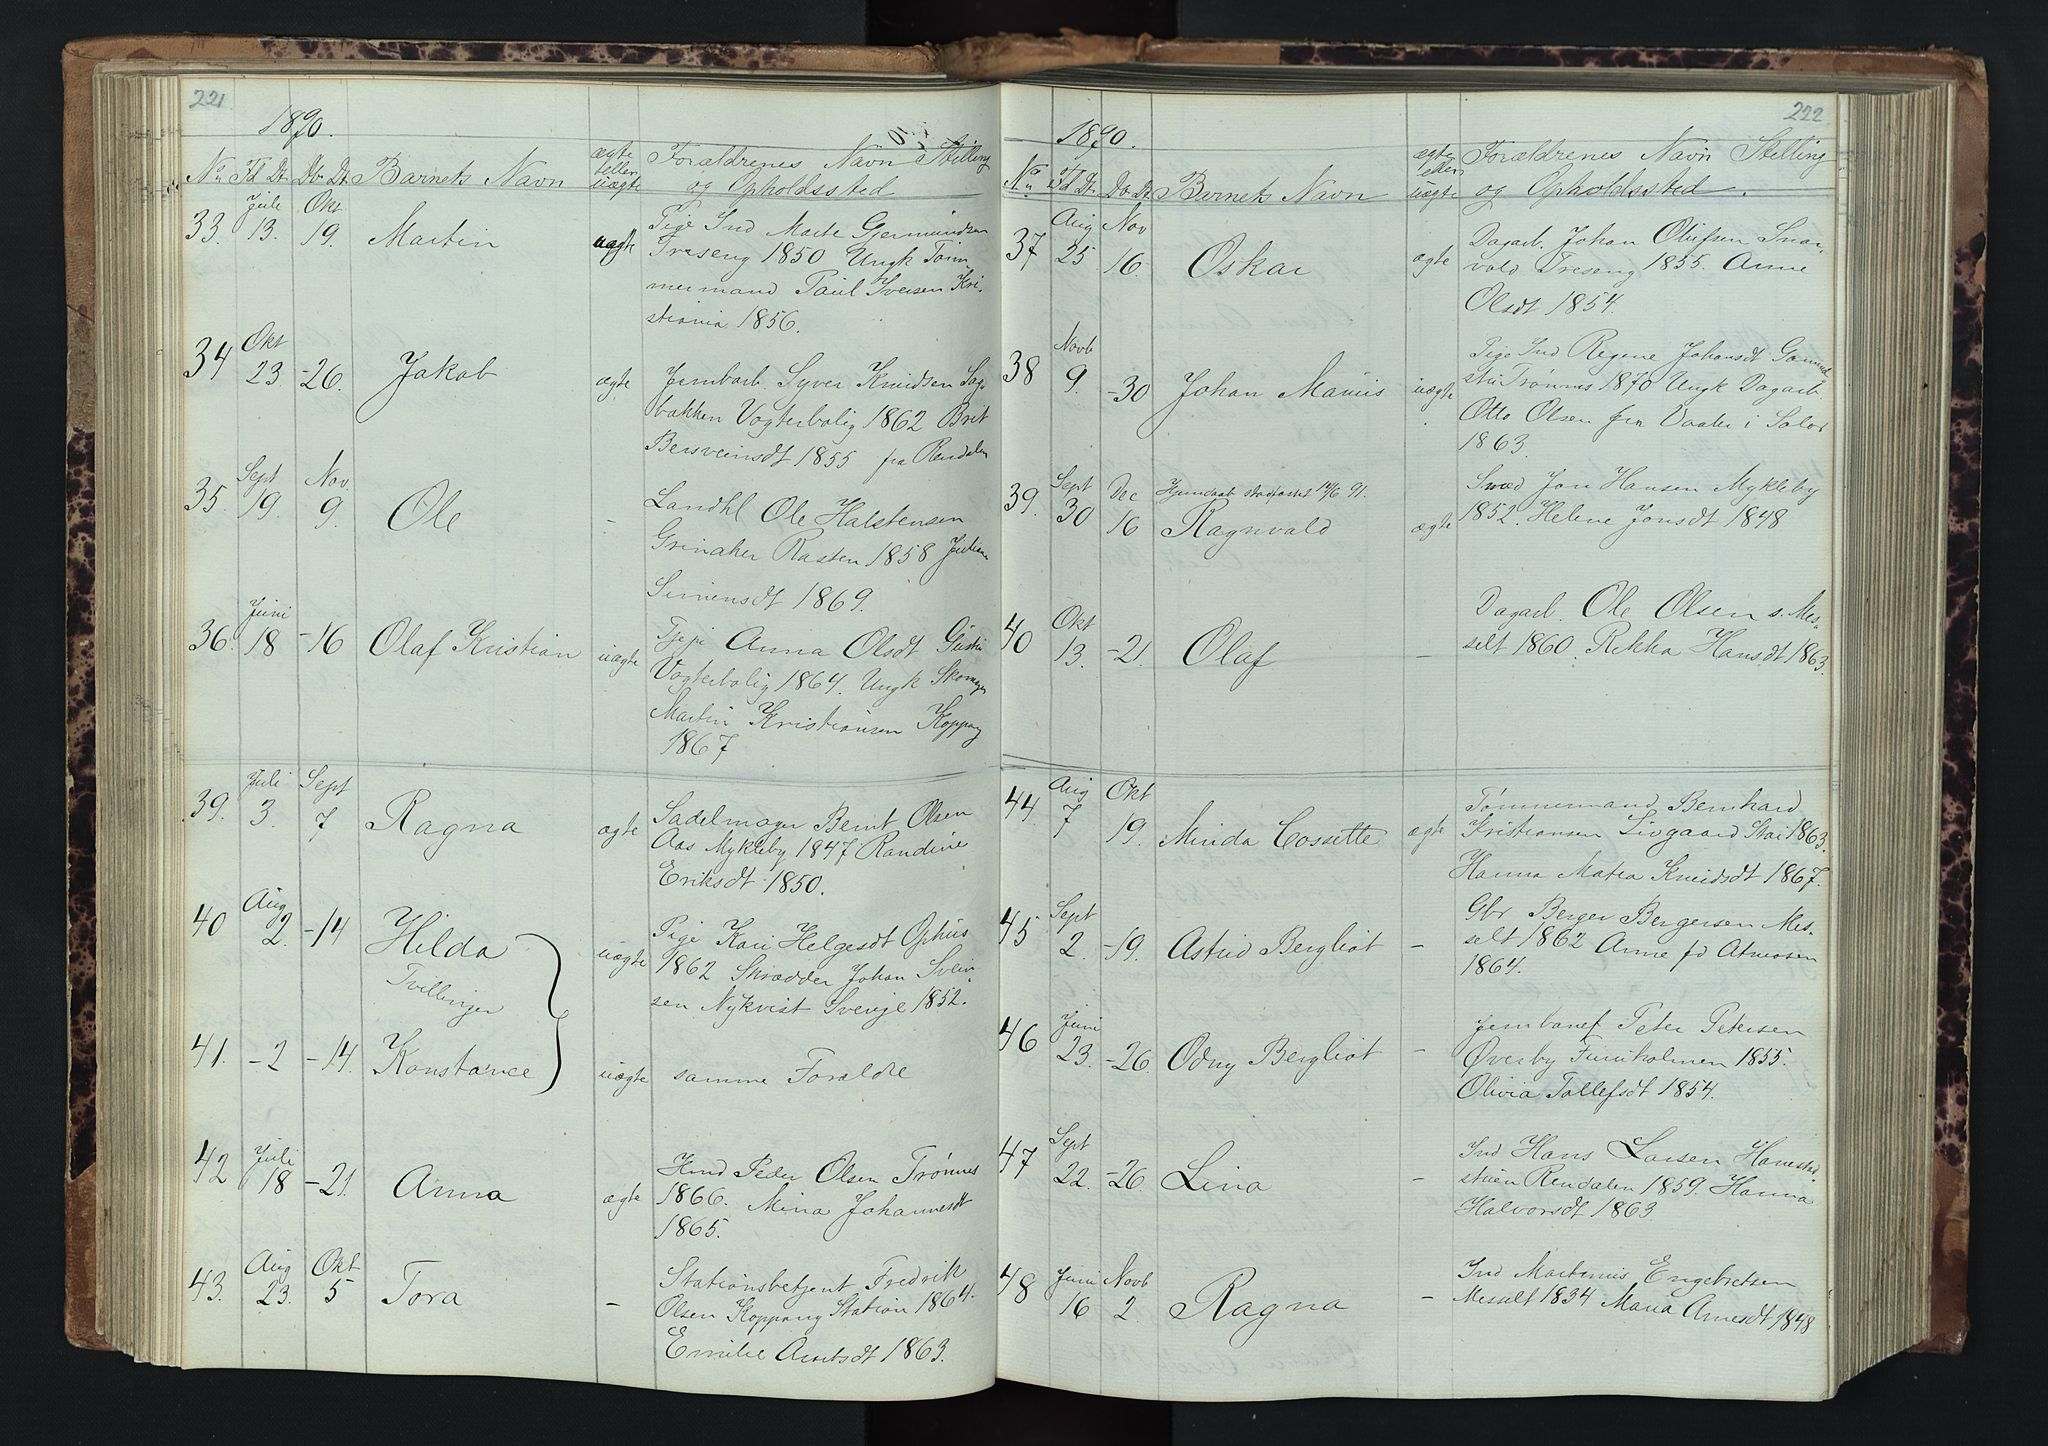 221
1890.
No Fd Dt. Db. Dt. Barnets Navn ægte eller uægte Forældrenes Navn Stilling og Opholdssted
33. Juli 13. Okt 19. Martin uægte Pige Ind Marte Germundsen
Treseng 1850 Ungk Töm-
mermand Paul Iversen Kri-
stiania 1856.
34 Okt 23. -26. Jakob ægte Jernbarb. Syver Knudsen Sag-
bakken Vogterbolig 1862 Brit
Bersveinsdt 1855 fra Rendalen
35. Sept 19. Nov. 9. Ole - Landhl Ole Halstensen
Grinaker Rasten 1858 Juliane
Simensdt 1869.
36. Juni 18 -16 Olaf Kristian uægte Tjepi Anna Olsdt
Vogterbolig 1864. Ungk Skomager
Martin Kristiansen Koppang
1867
39. Juli 3. Sept 7 Ragna ægte Sadelmager Bernt Olsen
Aas Mykleby 1847 Randine
Eriksdt 1850.
40 Aug 2. -14 Hilda uægte Pige Kari Helgesdt Ophus
1862 Skrædder Johan Svein-
sen Nykvist Sverige 1852.
Tvillinger
41. -2 -14. Konstance uægte samme Foræld​re
42 Juli 18 -21. Anna ægte Ind Peder Olsen Trønnes
1866. Mina Johannesdt
1865.
43. Aug 23. Okt 5 Tora - Stationsbetjent Fredrik
Olsen Koppang Station 1864.
Emilie Arntsdt 1863.
222
1890.
No Fd Dt. Db. Dt. Barnets Navn ægte eller uægte Forældrenes Navn Stilling og Opholdssted.
37 Aug 25 Nov 16. Oskar ægte Dagarb. Johan Olufsen Snar-
vold Treseng 1855. Anne
Olsdt 1854.
38 Novb 9. -30 Johan Marius uægte Pige Ind Regine Johansdt
stu Trønnes 1870 Ungk Dagarb.
Otto Olsen fra Vaaler i Solør
1863.
39. Sept 30 Dec 16 Hjemdøbt stadfæstet 14/6 91.
Ragnvald ægte Smed Jon Hansen Mykleby
1852. Helene Jonsdt 1848
40 Okt 13. -21. Olaf - Dagarb. Ole Olsen s. Mes-
selt 1860. Rikka Hansdt 1863.
44. Aug 7 Okt 19. Minda Cossette ægte Tømmermand Bernhard
Kristiansen Livgaard Stai 1863.
Hanna Matea Knudsdt 1867.
45 Sept 2. -19. Astrid Bergliot - Gbr Berger Bergersen Mes-
selt 1862 Anne fd Atneosen
1864.
46 Juni 23. -26. Odny Bergliot - Jernbanef Peter Petersen
Øverby Furuholmen 1855.
Olivia Tollefsdt 1854.
47 Sept 22. -26. Lina - Ind Hans Larsen Hanestad-
stuen Rendalen 1859. Hanna
Halvorsdt 1863.
48 Juni 16 Novb 2 Ragna - Ind Martinus Engebretsen
Messelt 1834 Maria Arnesdt 1848